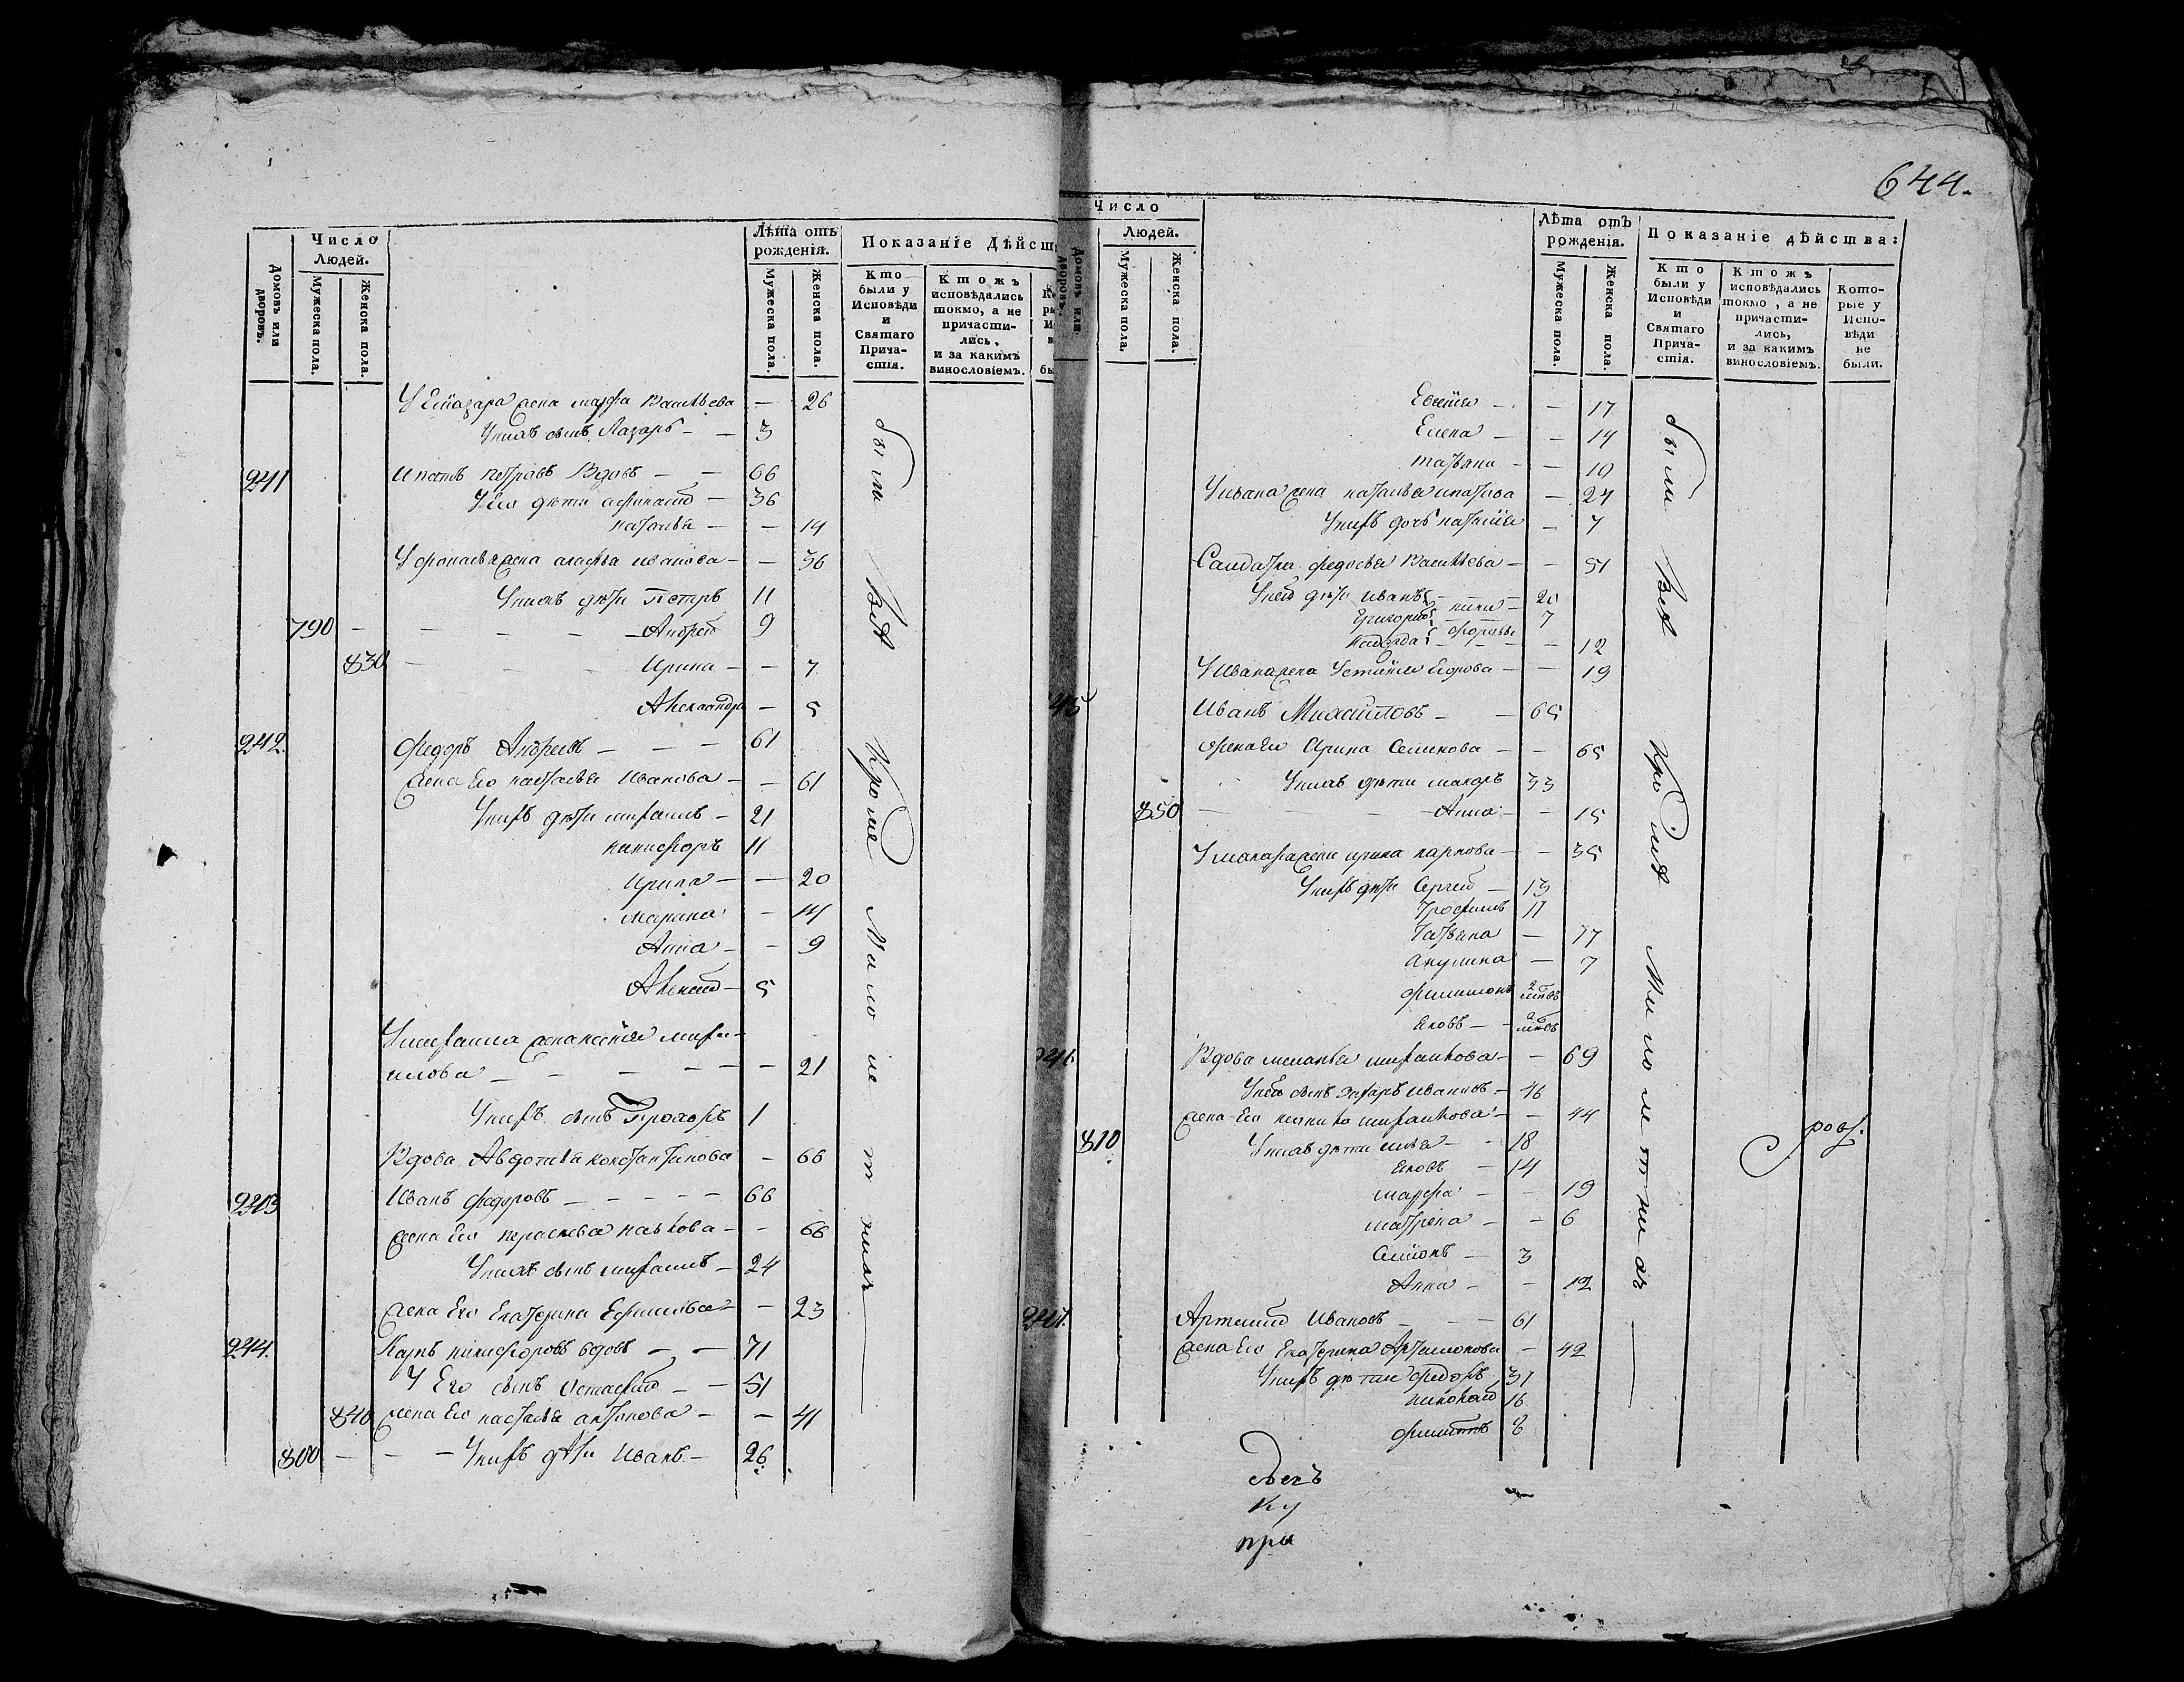 Домовъ или дворовъ.
Число Людей.
Мужеска пола.
Женска пола.
Лѣта отъ рожденія.
Мужеска пола.
Женска пола.
Показаніе Дѣйст
Кто были у Исповѣди и Святаго Прича- стія.
Ктожъ исповѣдались токмо, а не причасти- лись, и за какимъ винословіемъ.
жена марфа Васильева — 26
У нихъ сынъ Лазарь — — 3
241 Ипатъ Петровъ Вдовъ — — 66
У Его дѣти Афанасій — 36
Наталья — — 14
У Афонасья жена Агафья Иванова — — 36
У нихъ дѣти Петръ 11
790 — — — — — Андрей 9
830 — — — Ирина — — 7
Александра — 5
242. Федоръ Андреевъ — — — 61
Жена Его Наталья Иванова — — 61
У нихъ дѣти Михаилъ — 21
Никифоръ 11
Ирина — — 20
Марина — 14
Анна — — 9
Алексѣй — 5
У Михаила жена Ксенія Михаи-
лова — — — — — — 21
У нихъ сынъ Прохоръ 1
Вдова Авдотья Константинова — 66
243 Иванъ Федоровъ — — — — — 66
Жена Его Прасковья Павлова — — 66
У нихъ сынъ Михаилъ — 24
Жена Его Екатерина Ефимова — — 23
244. Карпъ Никифоровъ вдовъ — — 71
У Его сынъ Остафій — — 51
840 Жена Его Настасья Антонова — — 41
800 — — — У нихъ дѣти Иванъ — 26
были Всѣ Кроме Малолетнихъ
644.
Домовъ или дворовъ.
Число Людей.
Мужеска пола.
Женска пола.
Лѣта отъ рожденія.
Мужеска пола.
Женска пола.
Показаніе дѣйства:
Кто были у Исповѣди и Святаго Прича- стія.
Ктожъ исповѣдались токмо, а не причасти- лись, и за какимъ винословіемъ.
Кото- рые у Испо- вѣди не были.
— — 17
Елена — — 14
Татьяна — — 10
У Ивана жена Наталья Ипатова — 24
У нихъ дочь Наталія — 7
Салдатка Федосья Васильева — — 51
У Ней дѣти Иванъ — — 20
Григорій — — 7
Надежда — — 12
У Ивана жена Устинія Егорова — — 19
245 Иванъ Михайловъ — — 65
Жена Его Арина Семенова — — 65
У нихъ дѣти Макаръ 33
850 — — — Анна — — 15
У Макара жена Ирина Карпова — — 35
У нихъ дѣти Сергей — 13
Трофимъ 11
Татьяна — 17
Акулина — 7
Филимонъ 2
Яковъ — — 2
246. Вдова Меланья Михайлова — — 69
У Нее сынъ Захаръ Ивановъ — 46
Жена Его Михайлова — — 44
810 У нихъ дѣти Илья — — 18
Яковъ — 14
Марфа — — 19
Матрена — — 6
Симіонъ — 3
Анна — — 12
247. Артемій Ивановъ — — — 61
Жена Его Екатерина — 42
У нихъ дѣти Федоръ 31
Николай 16
Филиппъ 8
были Всѣ Кромѣ Малолетнихъ